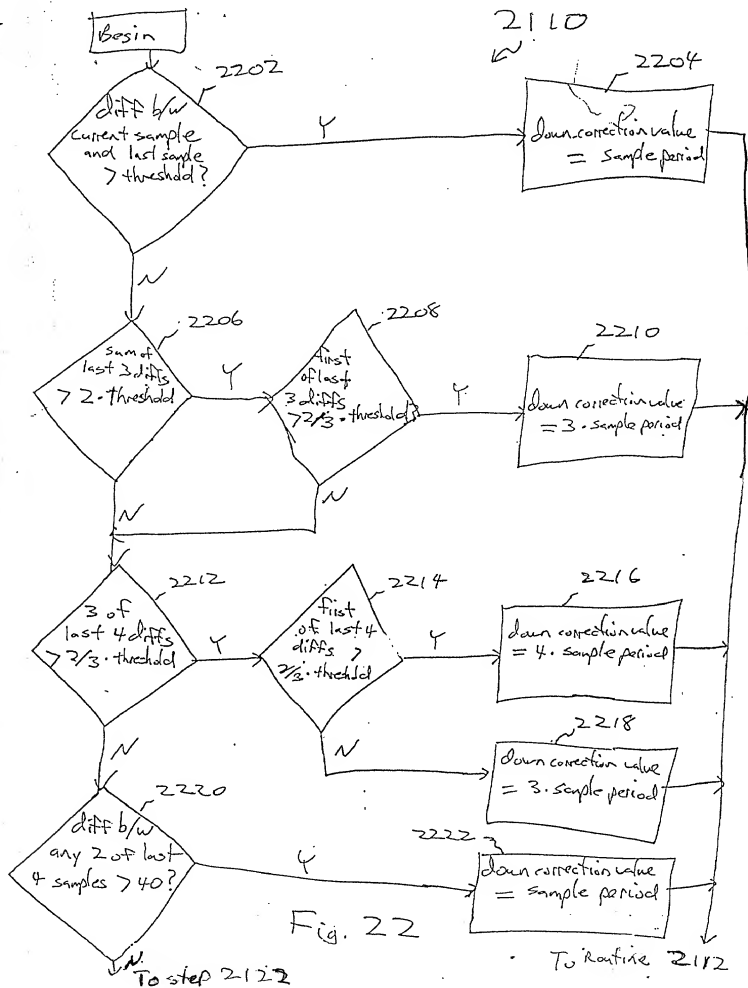 2110
Begin
2202
diff b/w
current sample
and last sample
> threshold?
Y
2204
down correction value
= sample period
N
2206
sum of
last 3 diffs
> 2 · threshold
Y
2208
first
of last
3 diffs
> 2/3 · threshold?
Y
2210
down correction value
= 3 · sample period
N
N
2212
3 of
last 4 diffs
> 2/3 · threshold
Y
2214
first
of last 4
diffs >
2/3 · threshold
Y
2216
down correction value
= 4 · sample period
N
2218
down correction value
= 3 · sample period
N
2220
diff b/w
any 2 of last
4 samples > 40?
Y
2222
down correction value
= sample period
N
To step 2122
Fig. 22
To Routine 2112